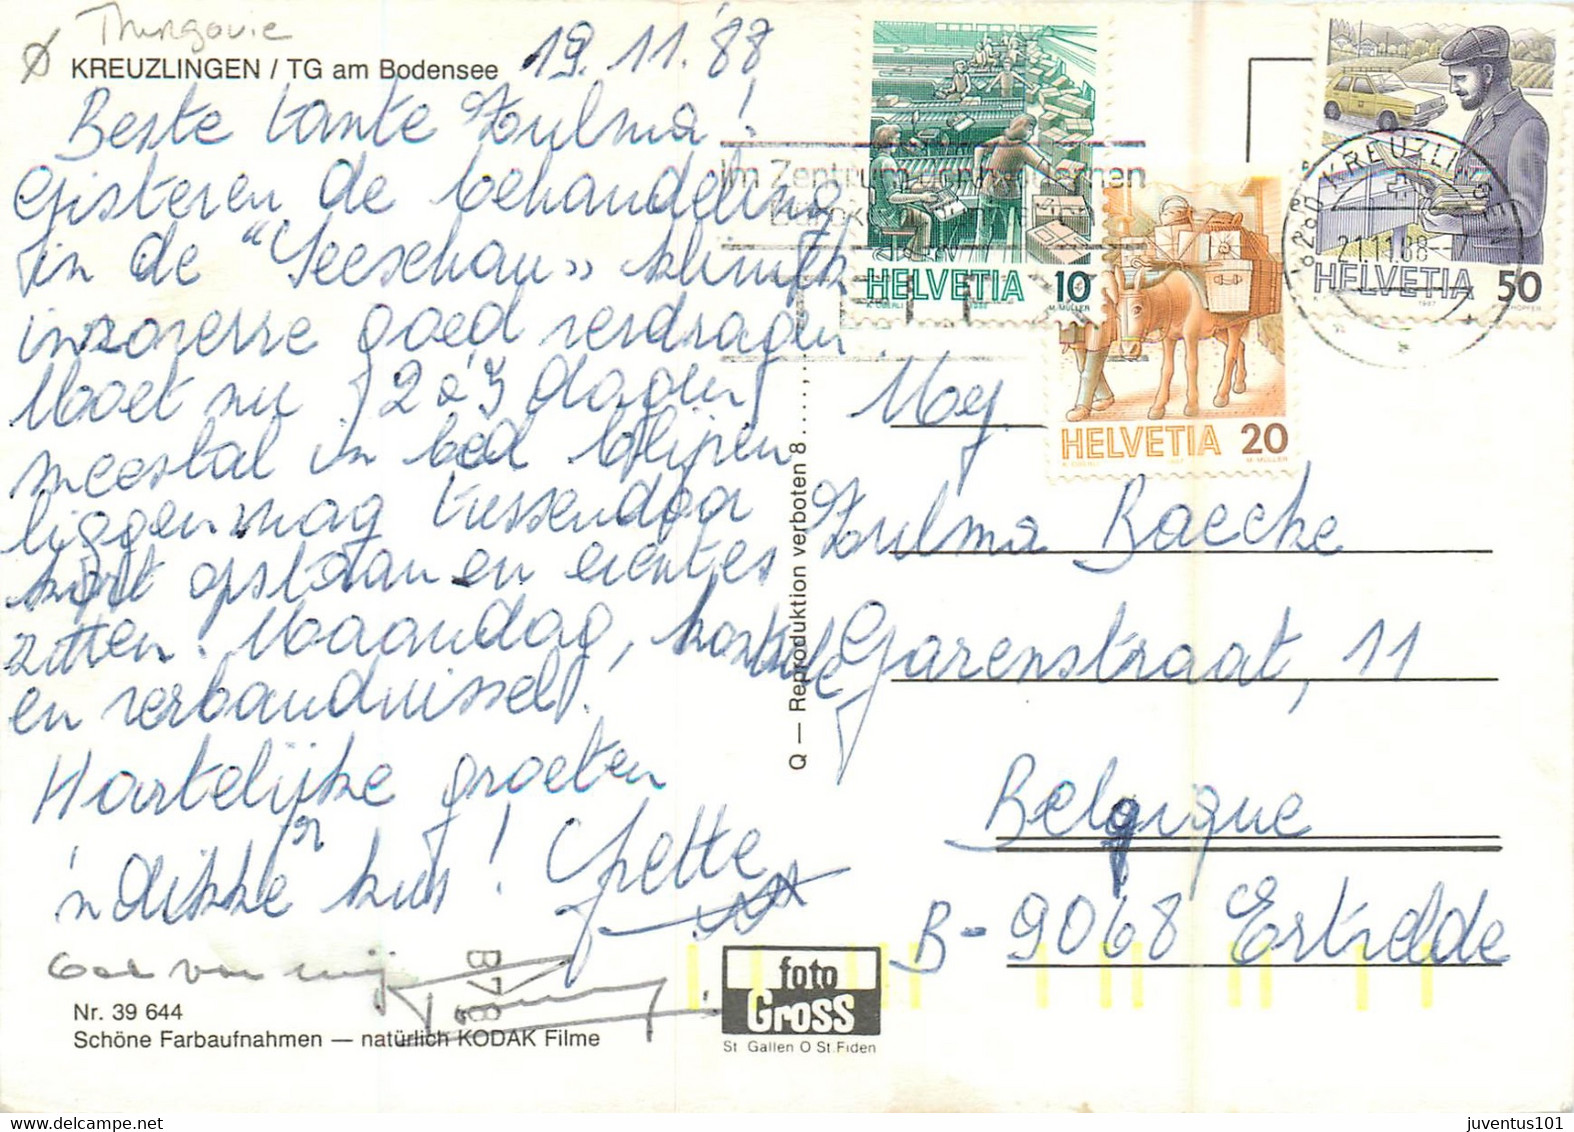 Thurgovie
KREUZLINGEN / TG am Bodensee
19.11.'88
Beste tante Zulma!
Gisteren de behandeling
in de "Seeschau" kliniek
inzoverre goed verdragen
Moet nu 2 à 3 dagen
meestal in bed blijven
liggen, mag tussendoor
kort opstaan en eventjes
zitten. Maandag, kontrole
en verbandwissel.
Hartelijke groeten
'n dikke kus! Yvette
Ook van mij
Nr. 39 644
Schöne Farbaufnahmen — natürlich KODAK Filme
B78
Q — Reproduktion verboten 8.....,—
foto
Gross
St. Gallen O St. Fiden
Im Zentrum von
HELVETIA 10
M. MÜLLER
HELVETIA 20
M. MÜLLER
HELVETIA 50
8280 KREUZLINGEN
21.11.88
Mej.
Zulma Baecke
Garenstraat, 11
Belgique
B-9068 Ertvelde
juventus101